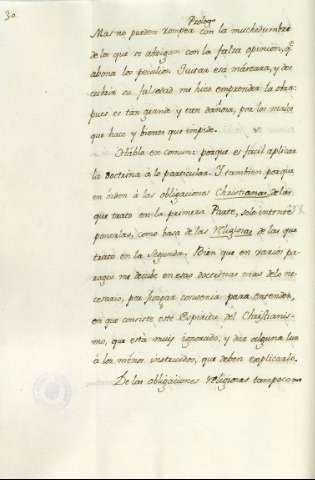 30.
Prologo
Mas no pueden romper con la muchedumbre
de los que se abrigan con la falsa opinion, q.e
abona los perjuicios. Quitar esa máscara, y des
cubrir su falsedad me hizo emprender la obra:
pues es tan grande y tan dañosa, por los males
que hace y bienes que impide.
Hablo en comun: porque es facil aplicar
la doctrina á lo particular. Y tambien porque
en órden á las obligaciones Christianas, de las
que trato en la primera Parte, solo intenté
ponerlas, como basa de las Religiosas de las que
trato en la Segunda. Bien que en varios pa
rages me dilaté en esas doctrinas mas de lo ne
cesario, por juzgar convenia para entender,
en que consiste este Espiritu del Christianis
mo, que está muy ignorado; y dar alguna luz
á los ménos instruidos, que deben explicarlo.
De las obligaciones Religiosas tampoco